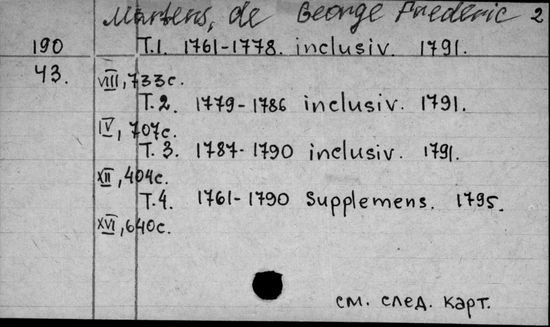 Martens, de George Frederic 2
190 T.1. 1761-1778. inclusiv. 1791.
43. VIII, 733c.
T.2. 1779-1786 inclusiv. 1791.
IV, 707c.
T.3. 1787-1790 inclusiv. 1791.
XII, 404c.
T.4. 1761-1790 Supplemens. 1795.
XVI, 640c.
см. след. карт.